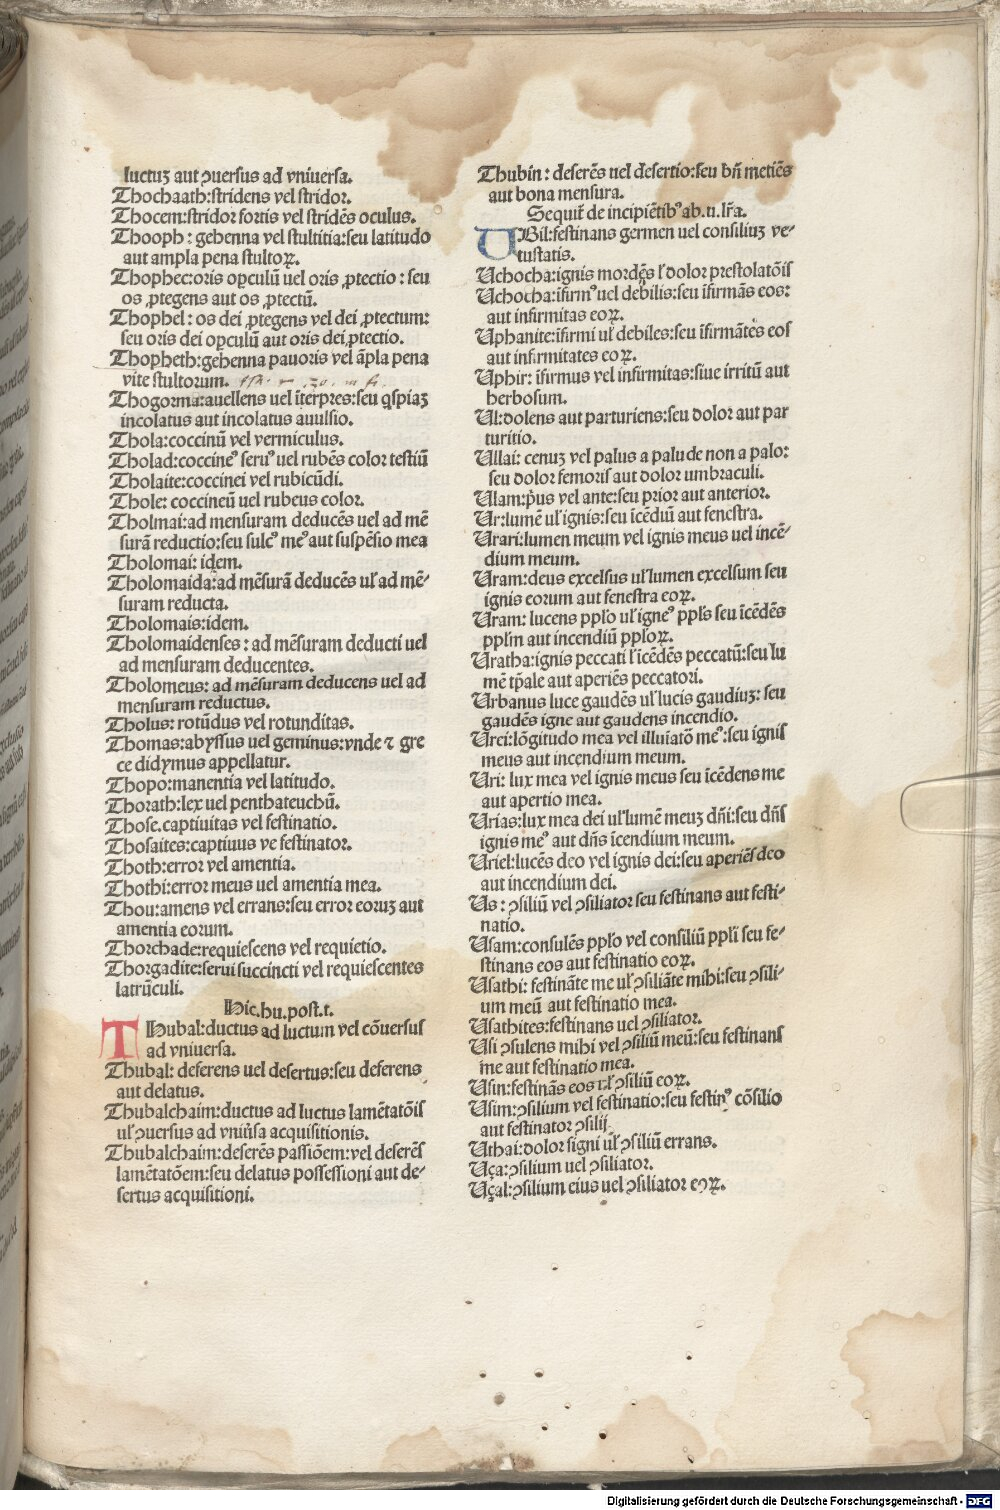 luctuʒ aut ↄuersus ad vniuersa.
Thochaath:stridens vel stridor.
Thocem:stridor fortis vel stridēs oculus.
Thooph: gehenna vel stultitia:seu latitudo
aut ampla pena stultoꝝ.
Thophec:oris opculū uel oris ꝓtectio: seu
os ꝓtegens aut os ꝓtectū.
Thophel: os dei ꝓtegens vel dei ꝓtectum:
seu oris dei opculū aut oris dei ꝓtectio.
Thopheth:gehenna pauoris vel āpla pena
vite stultorum.
Thogorma:auellens uel īterpres:seu qspiaʒ
incolatus aut incolatus auulsio.
Thola:coccinū vel vermiculus.
Tholad:coccineꝰ seruꝰ uel rubēs color testiū
Tholaite:coccinei vel rubicūdi.
Thole: coccineū uel rubeus color.
Tholmai:ad mensuram deducēs uel ad mē
surā reductio:seu sulcꝰ meꝰ aut suspēsio mea
Tholomai: idem.
Tholomaida:ad mēsurā deducēs ul̕ ad mē-
suram reducta.
Tholomais:idem.
Tholomaidenses: ad mēsuram deducti uel
ad mensuram deducentes.
Tholomeus: ad mēsuram deducens uel ad
mensuram reductus.
Tholus: rotūdus vel rotunditas.
Thomas:abyssus uel geminus:vnde ⁊ gre
ce didymus appellatur.
Thopo:manentia vel latitudo.
Thorath:lex uel penthateuchū.
Those.captiuitas vel festinatio.
Thosaites:captiuus ve festinator.
Thoth:error vel amentia.
Thothi:error meus uel amentia mea.
Thou:amens vel errans:seu error eoruʒ aut
amentia eorum.
Thorchade:requiescens vel requietio.
Thorgadite:serui succincti vel requiescentes
latrūculi.
Hic.hu.post.t.
THubal:ductus ad luctum vel cōuersus
ad vniuersa.
Thubal: deserens uel desertus:seu deferens
aut delatus.
Thubalchaim:ductus ad luctus lamētatōis
ul̕ ↄuersus ad vniūsa acquisitionis.
Thubalchaim:deserēs passiōem:vel deserēs
lamētatōem:seu delatus possessioni aut de-
sertus acquisitioni.
Thubin: deserēs uel desertio:seu bn̄ metiēs
aut bona mensura.
Sequit̄ de incipiētibꝰ ab.u.lr̄a.
UBil:festinans germen uel consiliuʒ ve-
tustatis.
Uchocha:ignis mordēs l̕ dolor prestolatōis
Uchocha:īfirmꝰ uel debilis:seu īfirmās eos:
aut infirmitas eoꝝ.
Uphanite:īfirmi ul̕ debiles:seu īfirmātes eos
aut infirmitates eoꝝ.
Uphir: īfirmus vel infirmitas:siue irritū aut
herbosum.
Ul:dolens aut parturiens:seu dolor aut par
turitio.
Ullai: cenuʒ vel palus a palude non a palo:
seu dolor femoris aut dolor umbraculi.
Ulam:p̄us vel ante:seu prior aut anterior.
Ur:lumē ul̕ ignis:seu īcēdiū aut fenestra.
Urari:lumen meum vel ignis meus uel incē-
dium meum.
Uram:deus excelsus ul̕ lumen excelsum seu
ignis eorum aut fenestra eoꝝ.
Uram: lucens pplo̅ ul̕ igneꝰ ppli̅s seu īcēdēs
ppl̅m aut incendiū pplo̅ꝝ.
Uratha:ignis peccati l̕ īcēdēs peccatū:seu lu
mē tp̄ale aut aperiēs peccatori.
Urbanus luce gaudēs ul̕ lucis gaudiuʒ: seu
gaudēs igne aut gaudens incendio.
Urei:lōgitudo mea vel illuiatō meꝰ:seu ignis
meus aut incendium meum.
Uri: lux mea vel ignis meus seu īcēdens me
aut apertio mea.
Urias:lux mea dei ul̕ lumē meuʒ dn̄i:seu dn̄s
ignis meꝰ aut dn̄s īcendium meum.
Uriel:lucēs deo vel ignis dei:seu aperiēs deo
aut incendium dei.
Us: ↄsiliū vel ↄsiliator seu festinans aut festi-
natio.
Usam:consulēs pplo̅ vel consiliū ppli̅ seu fe-
stinans eos aut festinatio eoꝝ.
Usathi: festināte me ul̕ ↄsiliāte mihi:seu ↄsili-
um meū aut festinatio mea.
Usathites:festinans uel ↄsiliator.
Usi ↄsulens mihi vel ↄsiliū meū:seu festinans
me aut festinatio mea.
Usin:festinās eos ul̕ ↄsiliū eoꝝ.
Usim:ↄsilium vel festinatio:seu festinꝰ cōsilio
aut festinator ↄsilij
Uthai:dolor signi ul̕ ↄsiliū errans.
Uça:ↄsilium uel ↄsiliator.
Uçal:ↄsilium eius uel ↄsiliator eoꝝ.
Digitalisierung gefördert durch die Deutsche Forschungsgemeinschaft - DFG